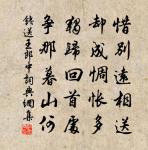 惜别遠相送
却成惆悵多
獨歸回首處
爭那暮山何
錢送王郎中詞典網集